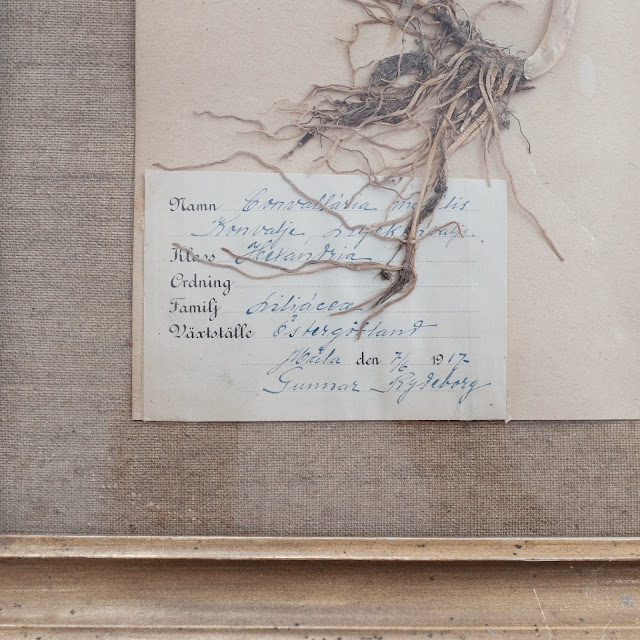 Namn Convallária majális
Konvalje, Liljekonvalje.
Klass Hexandria
Ordning
Familj Liljácea
Växtställe Östergötland
den 7/6 1917
Gunnar Rydeborg